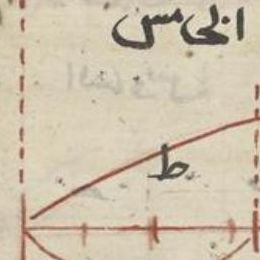 الخامس
ط